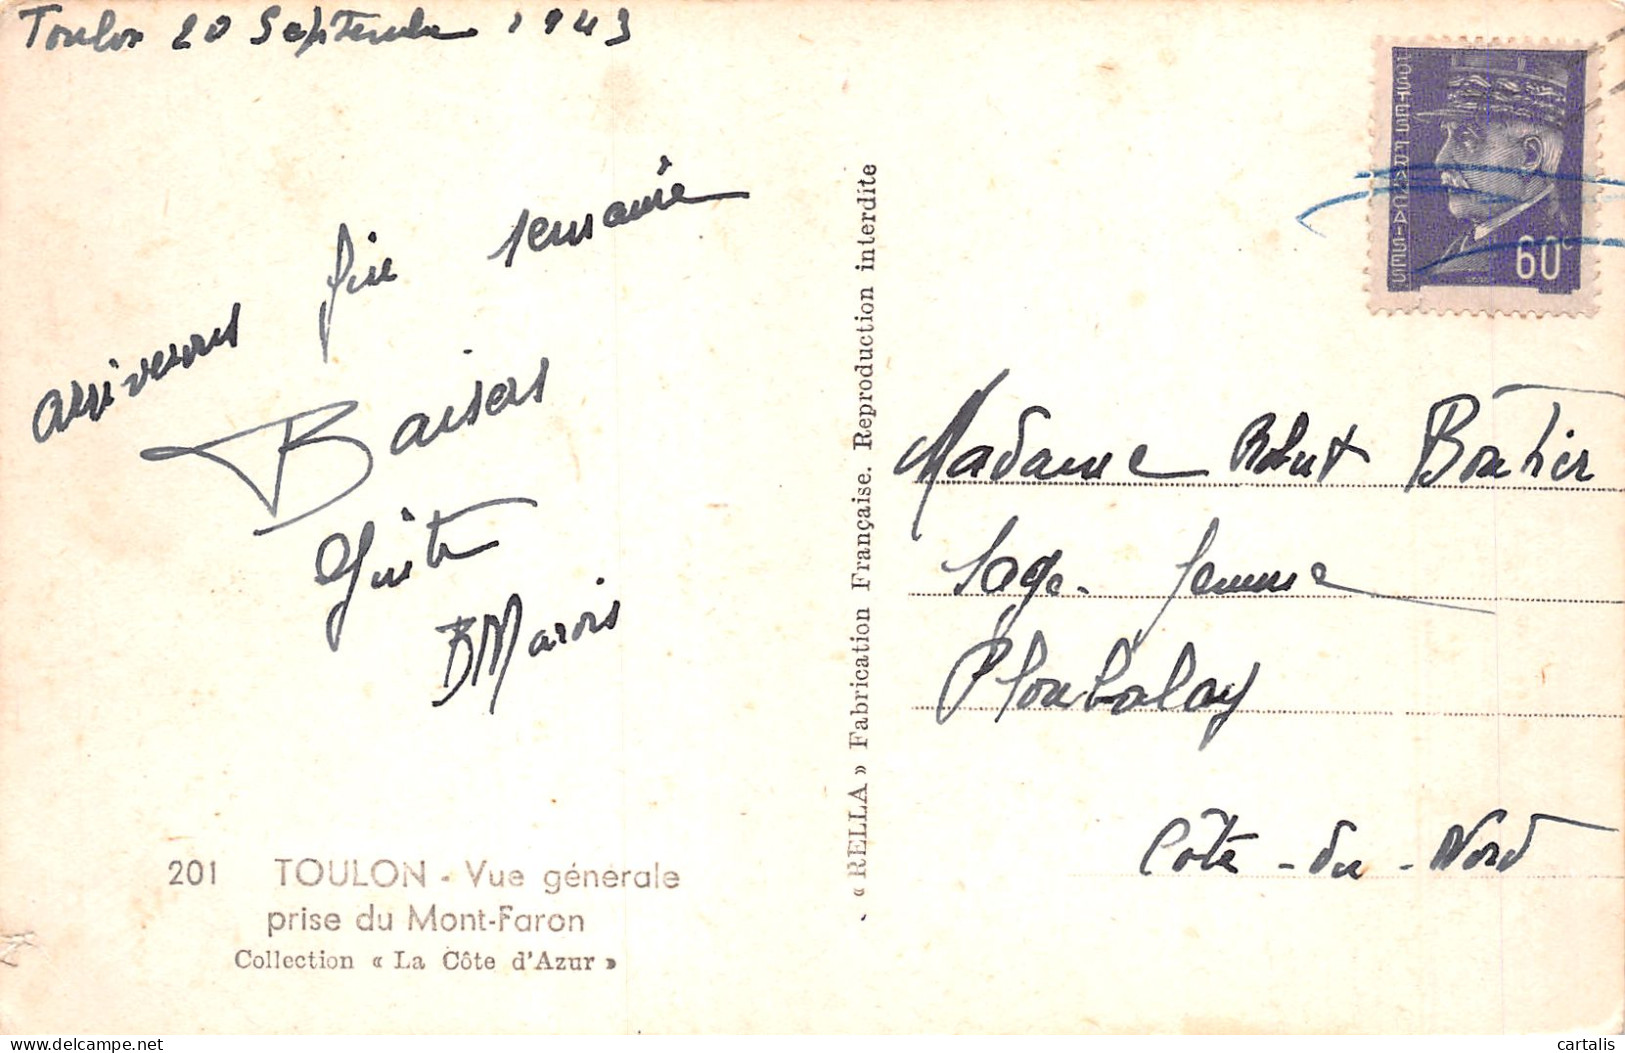 Toulon 20 Septembre 1943
arriverons fin semaine
Baisers
Guite
BMarois
201 TOULON - Vue générale
prise du Mont-Faron
Collection « La Côte d'Azur »
« RELLA » Fabrication Française. Reproduction interdite
POSTES FRANÇAISES
60c
Madame Robert Bouhier
Sage-femme
Ploubalay
Côte-du-Nord
cartalis
delcampe.net